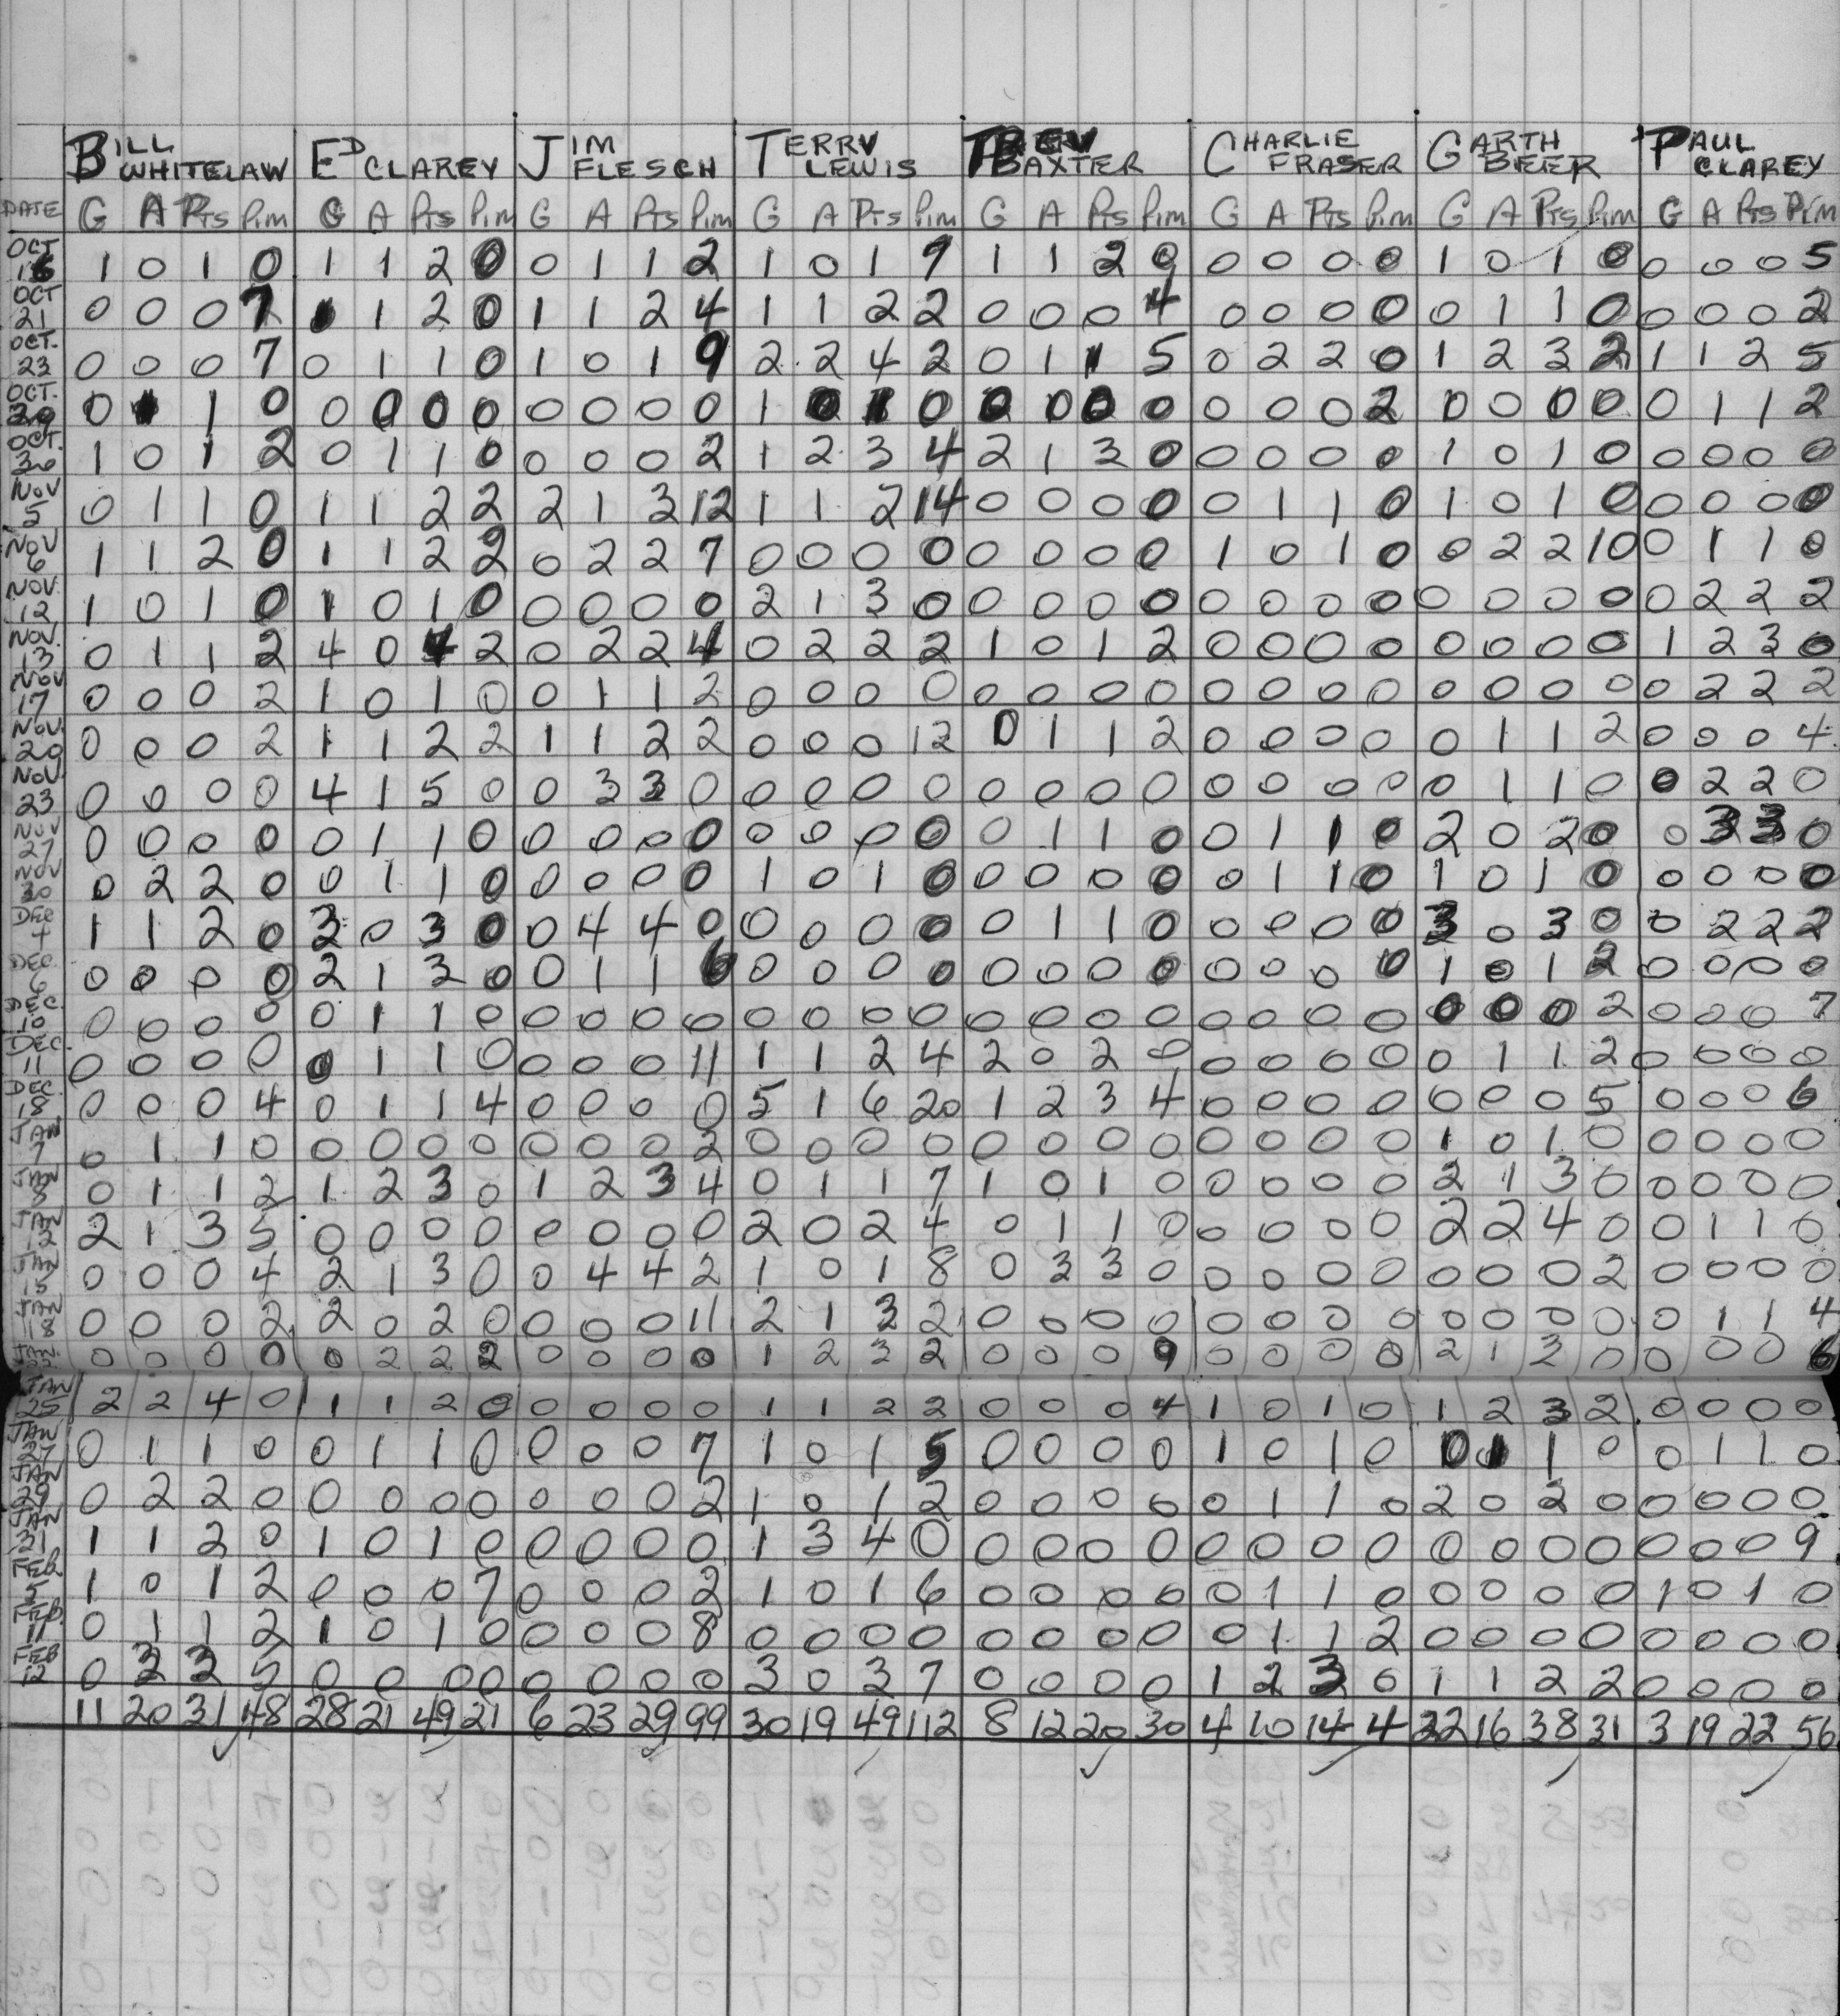 BILL WHITELAW ED CLAREY JIM FLESCH TERRY LEWIS TREV BAXTER CHARLIE FRASER GARTH BEER PAUL CLAREY
DATE G A Pts Pim G A Pts Pim G A Pts Pim G A Pts Pim G A Pts Pim G A Pts Pim G A Pts Pim G A Pts Pim
OCT 16 1 0 1 0 1 1 2 0 0 1 1 2 1 0 1 9 1 1 2 0 0 0 0 0 1 0 1 0 0 0 0 5
OCT 21 0 0 0 7 1 1 2 0 1 1 2 4 1 1 2 2 0 0 0 4 0 0 0 0 0 1 1 0 0 0 0 2
OCT. 23 0 0 0 7 0 1 1 0 1 0 1 9 2 2 4 2 0 1 1 5 0 2 2 0 1 2 3 2 1 1 2 5
OCT. 29 0 1 1 0 0 0 0 0 0 0 0 0 1 0 1 0 0 0 0 0 0 0 0 2 0 0 0 0 0 1 1 2
OCT. 30 1 0 1 2 0 1 1 0 0 0 0 2 1 2 3 4 2 1 3 0 0 0 0 0 1 0 1 0 0 0 0 0
NOV 5 0 1 1 0 1 1 2 2 2 1 3 12 1 1 2 14 0 0 0 0 0 1 1 0 1 0 1 0 0 0 0 0
NOV 6 1 1 2 0 1 1 2 2 0 2 2 7 0 0 0 0 0 0 0 0 1 0 1 0 0 2 2 10 0 1 1 0
NOV. 12 1 0 1 0 1 0 1 0 0 0 0 0 2 1 3 0 0 0 0 0 0 0 0 0 0 0 0 0 0 2 2 2
NOV. 13 0 1 1 2 4 0 4 2 0 2 2 4 0 2 2 2 1 0 1 2 0 0 0 0 0 0 0 0 1 2 3 0
NOV 17 0 0 0 2 1 0 1 0 0 1 1 2 0 0 0 0 0 0 0 0 0 0 0 0 0 0 0 0 0 2 2 2
NOV. 20 0 0 0 2 1 1 2 2 1 1 2 2 0 0 0 12 0 1 1 2 0 0 0 0 0 1 1 2 0 0 0 4
NOV. 23 0 0 0 0 4 1 5 0 0 3 3 0 0 0 0 0 0 0 0 0 0 0 0 0 0 1 1 0 0 2 2 0
NOV 27 0 0 0 0 0 1 1 0 0 0 0 0 0 0 0 0 0 1 1 0 0 1 1 0 2 0 2 0 0 3 3 0
NOV 30 0 2 2 0 0 1 1 0 0 0 0 0 1 0 1 0 0 0 0 0 0 1 1 0 1 0 1 0 0 0 0 0
DEC 4 1 1 2 0 3 0 3 0 0 4 4 0 0 0 0 0 0 1 1 0 0 0 0 0 3 0 3 0 0 2 2 2
DEC. 6 0 0 0 0 2 1 3 0 0 1 1 6 0 0 0 0 0 0 0 0 0 0 0 0 1 0 1 2 0 0 0 0
DEC. 10 0 0 0 0 0 1 1 0 0 0 0 0 0 0 0 0 0 0 0 0 0 0 0 0 0 0 0 2 0 0 0 7
DEC. 11 0 0 0 0 0 1 1 0 0 0 0 11 1 1 2 4 2 0 2 0 0 0 0 0 0 1 1 2 0 0 0 0
DEC. 18 0 0 0 4 0 1 1 4 0 0 0 0 5 1 6 20 1 2 3 4 0 0 0 0 0 0 0 5 0 0 0 6
JAN 7 0 1 1 0 0 0 0 0 0 0 0 2 0 0 0 0 0 0 0 0 0 0 0 0 1 0 1 0 0 0 0 0
JAN 8 0 1 1 2 1 2 3 0 1 2 3 4 0 1 1 7 1 0 1 0 0 0 0 0 2 1 3 0 0 0 0 0
JAN 12 2 1 3 5 0 0 0 0 0 0 0 0 2 0 2 4 0 1 1 0 0 0 0 0 2 2 4 0 0 1 1 0
JAN 15 0 0 0 4 2 1 3 0 0 4 4 2 1 0 1 8 0 3 3 0 0 0 0 0 0 0 0 2 0 0 0 0
JAN 18 0 0 0 2 2 0 2 0 0 0 0 11 2 1 3 2 0 0 0 0 0 0 0 0 0 0 0 0 0 1 1 4
JAN. 0 0 0 0 0 2 2 2 0 0 0 0 1 2 3 2 0 0 0 9 0 0 0 0 2 1 3 0 0 0 0 6
JAN 25 2 2 4 0 1 1 2 0 0 0 0 0 1 1 2 2 0 0 0 4 1 0 1 0 1 2 3 2 0 0 0 0
JAN 27 0 1 1 0 0 1 1 0 0 0 0 7 1 0 1 5 0 0 0 0 1 0 1 0 0 1 1 0 0 1 1 0
JAN 29 0 2 2 0 0 0 0 0 0 0 0 2 1 0 1 2 0 0 0 0 0 1 1 0 2 0 2 0 0 0 0 0
JAN 31 1 1 2 0 1 0 1 0 0 0 0 0 1 3 4 0 0 0 0 0 0 0 0 0 0 0 0 0 0 0 0 9
FEB 5 1 0 1 2 0 0 0 7 0 0 0 2 1 0 1 6 0 0 0 0 0 1 1 0 0 0 0 0 1 0 1 0
FEB. 11 0 1 1 2 1 0 1 0 0 0 0 8 0 0 0 0 0 0 0 0 0 1 1 2 0 0 0 0 0 0 0 0
FEB 12 0 3 3 5 0 0 0 0 0 0 0 0 3 0 3 7 0 0 0 0 1 2 3 0 1 1 2 2 0 0 0 0
11 20 31 48 28 21 49 21 6 23 29 99 30 19 49 112 8 12 20 30 4 10 14 4 22 16 38 31 3 19 22 56